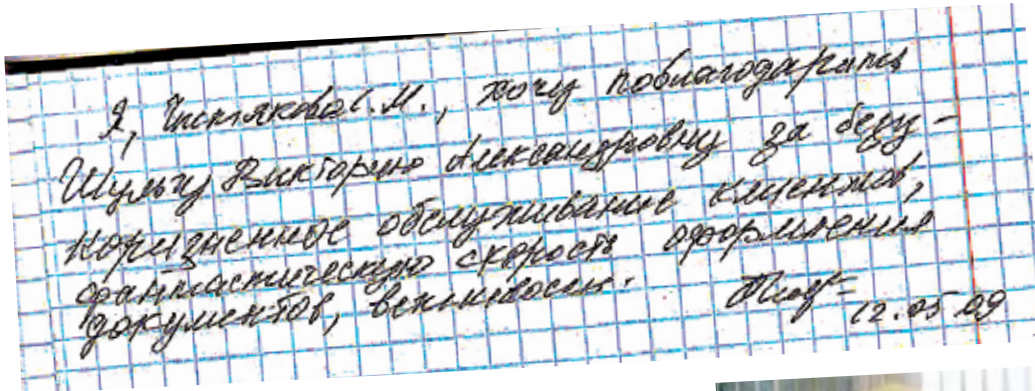 Я, Чистякова С.М., хочу поблагодарить
Шульгу Викторию Александровну за безу-
коризненное обслуживание клиентов,
фантастическую скорость оформления
документов, вежливость.
12.05.09